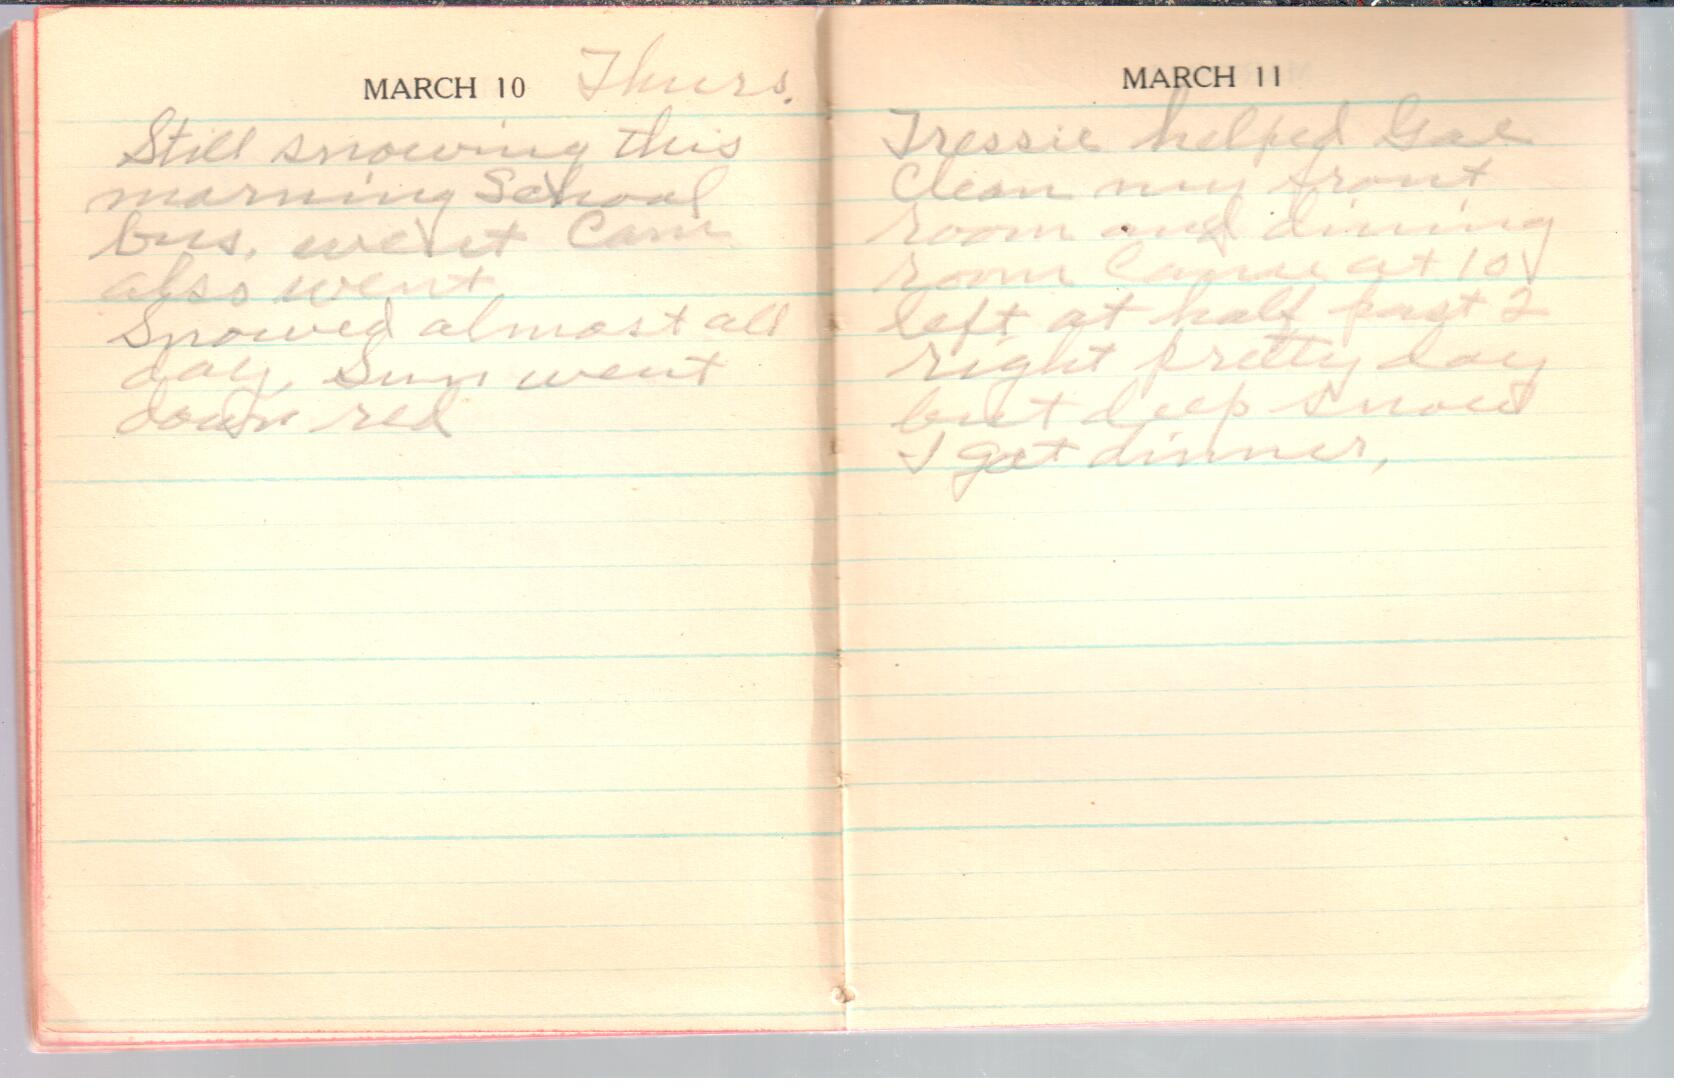 MARCH 10 Thurs.
Still snowing this
morning School
bus. went Cam
also went
Snowed almost all
day, Sun went
down red
MARCH 11
Tressie helped Gae
Clean my front
room and dining
room Came at 10
left at half past 2
right pretty day
but deep snow
I got dinner,